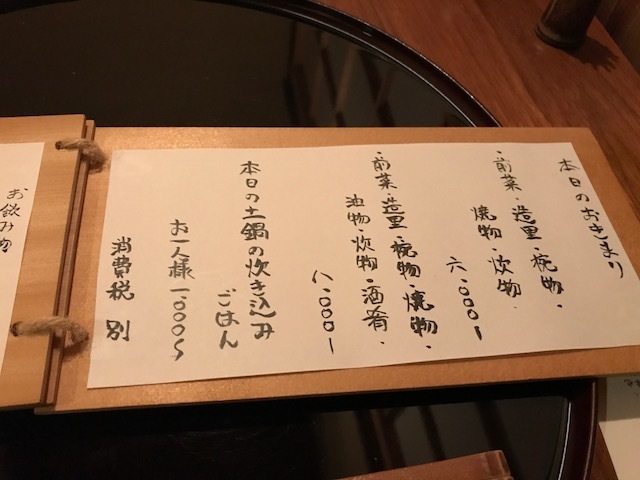 本日のおきまり
・前菜・造里・椀物・
焼物・炊物・
六、〇〇〇ー
・前菜・造里・椀物・焼物・
油物・炊物・酒肴・
八、〇〇〇ー
本日の土鍋の炊き込み
ごはん
お一人様 一、〇〇〇〜
消費税 別
お飲み物